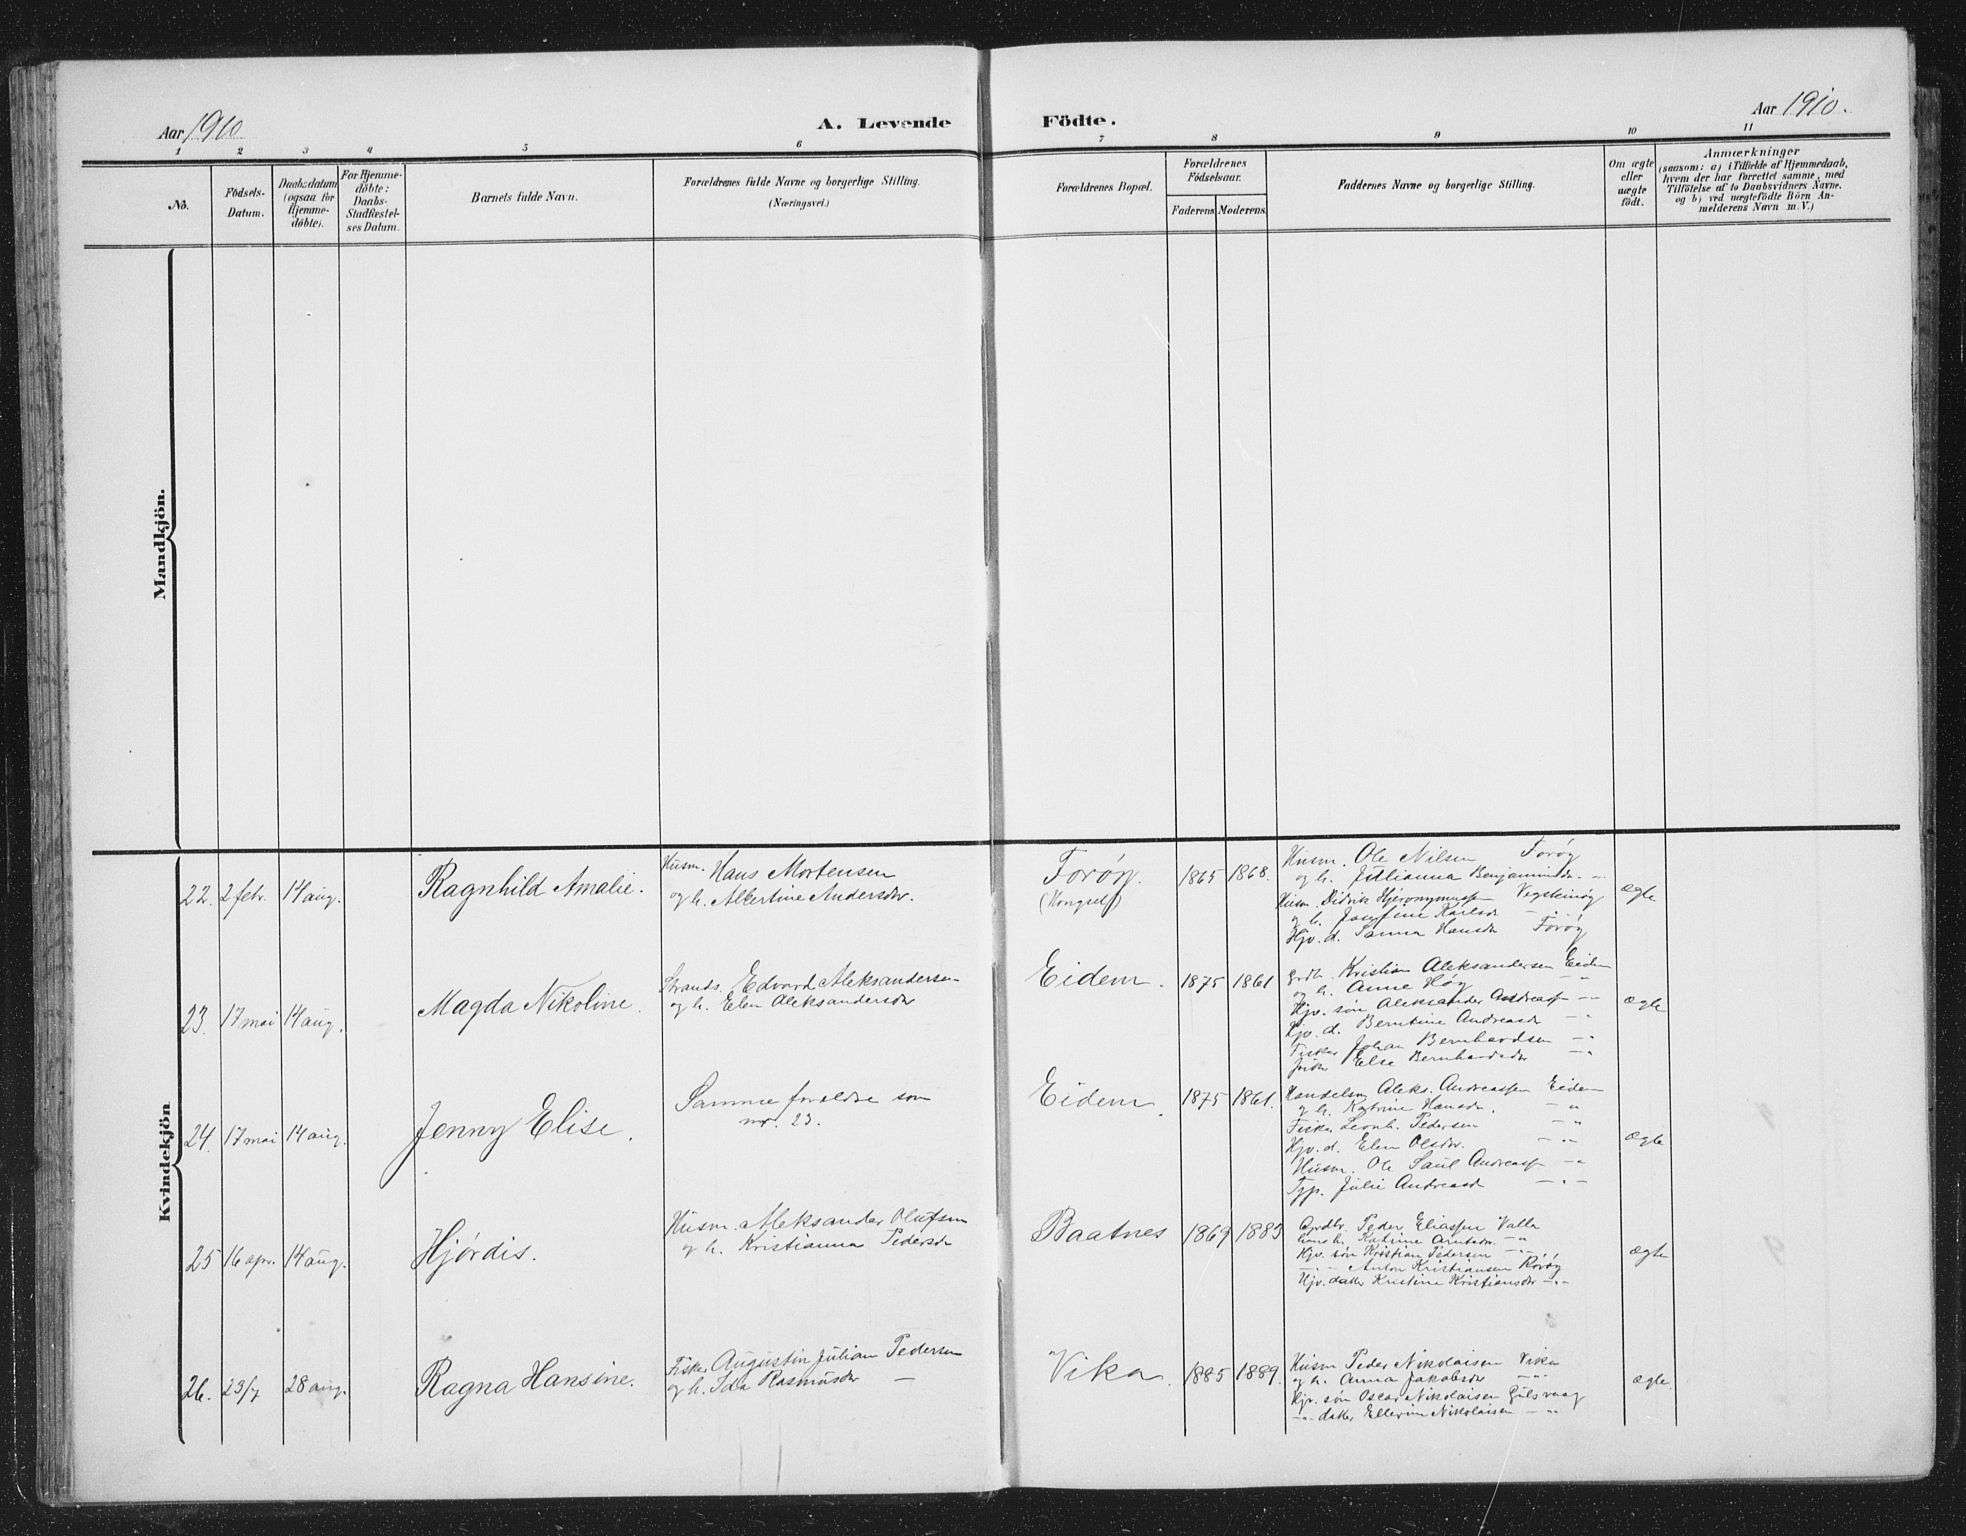 Aar 1910
A. Levende
Födte.
Aar 1910.
1 2 3 4 5 6 7 8 9 10 11
No.
Födsels-
Datum.
Daabsdatum
(ogsaa for
Hjemme-
döbte).
For Hjemme-
döbte:
Daabs-
Stadfestel-
ses Datum.
Barnets fulde Navn.
Forældrenes fulde Navne og borgerlige Stilling.
(Næringsvei.)
Forældrenes Bopæl.
Forældrenes
Födselsaar.
Faderens Moderens.
Faddernes Navne og borgerlige Stilling.
Om ægte
eller
uægte
födt.
Anmærkninger
(saasom: a) i Tilfælde af Hjemmedaab,
hvem der har forrettet samme, med
Tilföielse af to Daabsvidners Navne.
og b) ved uægtefödte Börn An-
melderens Navn m. V.)
Mandkjön.
Kvindekjön
22. 2 febr. 14 aug. Ragnhild Amalie.
Husm. Hans Mortensen
og h. Albertine Andersdtr.
Forøy.
(Kongself)
1865 1868.
Husm. Ole Nilsen Forøy
og h. Julianna Benjaminsdtr. -"-
Husm. Didrik Hjeronymussen Vegsteinøy
og h. Josefine Karlsdr
Hjv. d. Sanna Hansdr Forøy
ægte
23. 17 mai 14 aug. Magda Nikoline.
Strands. Edvard Aleksandersen
og h. Elen Aleksandersdtr
Eidem. 1875 1861
Grdb. Kristian Aleksandersen Eidem
og h. Anne Høg -"-
Hjv. søn Aleksander Andreass. -"-
Hjv. d. Berntine Andreasdr -"-
Fisker Johan Bernhardsen -"-
Else Bernhardsdr -"-
ægte
24. 17 mai 14 aug. Jenny Elise.
Samme foreldre som
nr. 23.
Eidem. 1875 1861.
Handelsm. Aleks. Andreassen Eidem
og h. Katrine Hansdr. -"-
Fisker Leonh. Pedersen -"-
Hjv. d. Elen Olsdtr. -"-
Husm. Ole Saul Andreass. -"-
Tjp. Julie Andreasd -"-
ægte
25 16 apr. 14 aug. Hjørdis.
Husm. Aleksander Olufsen
og h. Kristianna Pedersdr
Baatnes 1869 1883
Grdbr. Peder Eliassen Valla
hans h. Katrine Arntsdr. -"-
Hjv. søn Kristian Pedersen -"-
-"- Anton Kristiansen Rørøy
Hjv. datter Kristine Kristiansdr -"-
ægte
26. 23/7 28 aug. Ragna Hansine.
Fisker Augustin Julian Pedersen
og h. Ida Rasmusdtr —
Vika. 1885 1889.
Husm Peder Nikolaisen Vika
og h. Anna Jakobsdr -"-
Hjv. søn Oscar Nikolaisen Gulsvaag
-"- datter Ellerine Nikolaisen -"-
ægte